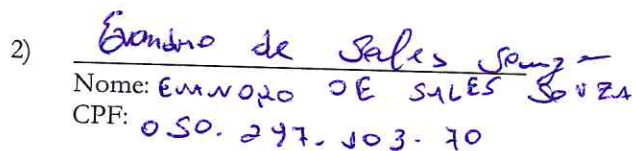 2) Evandro de Sales Souza
Nome: EVANDRO DE SALES SOUZA
CPF: 050.297.103-70